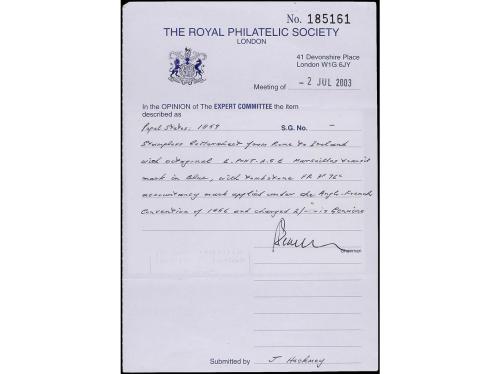 No. 185161
THE ROYAL PHILATELIC SOCIETY
LONDON
41 Devonshire Place
London W1G 6JY
Meeting of - 2 JUL 2003
In the OPINION of The EXPERT COMMITTEE the item
described as
Papal States: 1859 S.G. No. -
Stampless lettersheet from Rome to Ireland
with octagonal Marseilles transit
mark in Blue, with tombstone FR
accountancy mark applied under the Anglo-French
Convention of 1856 and charged 2/- is Genuine
Chairman
Submitted by J Hackmey